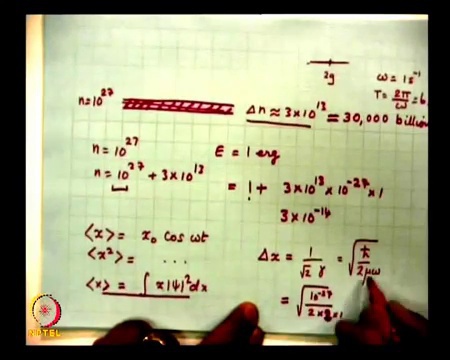 2g
ω = 1 s⁻¹
T = 2π/ω = 6
n = 10²⁷
Δn ≈ 3 × 10¹³ = 30,000 billion
n = 10²⁷
E = 1 erg
n = 10²⁷ + 3 × 10¹³
= 1 + 3 × 10¹³ × 10⁻²⁷ × 1
3 × 10⁻¹⁴
⟨x⟩ = x₀ cos ωt
⟨x²⟩ =
Δx = 1/(√2 γ) = √(ħ/2μω)
⟨x⟩ = ∫ x|ψ|² dx
= √(10⁻²⁷/2 × 2 × 1
NPTEL